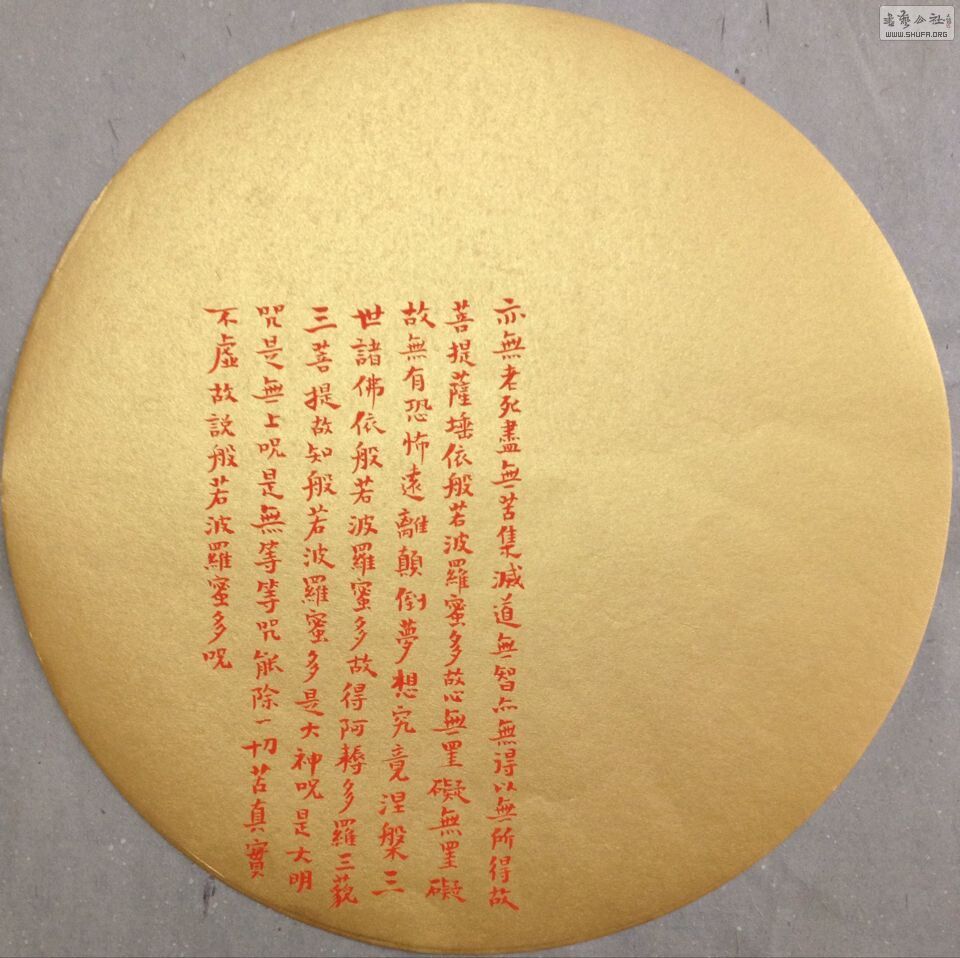 亦無老死盡無苦集滅道無智亦無得以無所得故
菩提薩埵依般若波羅蜜多故心無罣礙無罣礙
故無有恐怖遠離顛倒夢想究竟涅槃三
世諸佛依般若波羅蜜多故得阿耨多羅三藐
三菩提故知般若波羅蜜多是大神呪是大明
呪是無上呪是無等等呪能除一切苦真實
不虛故說般若波羅蜜多呪
書藝公社
WWW.SHUFA.ORG